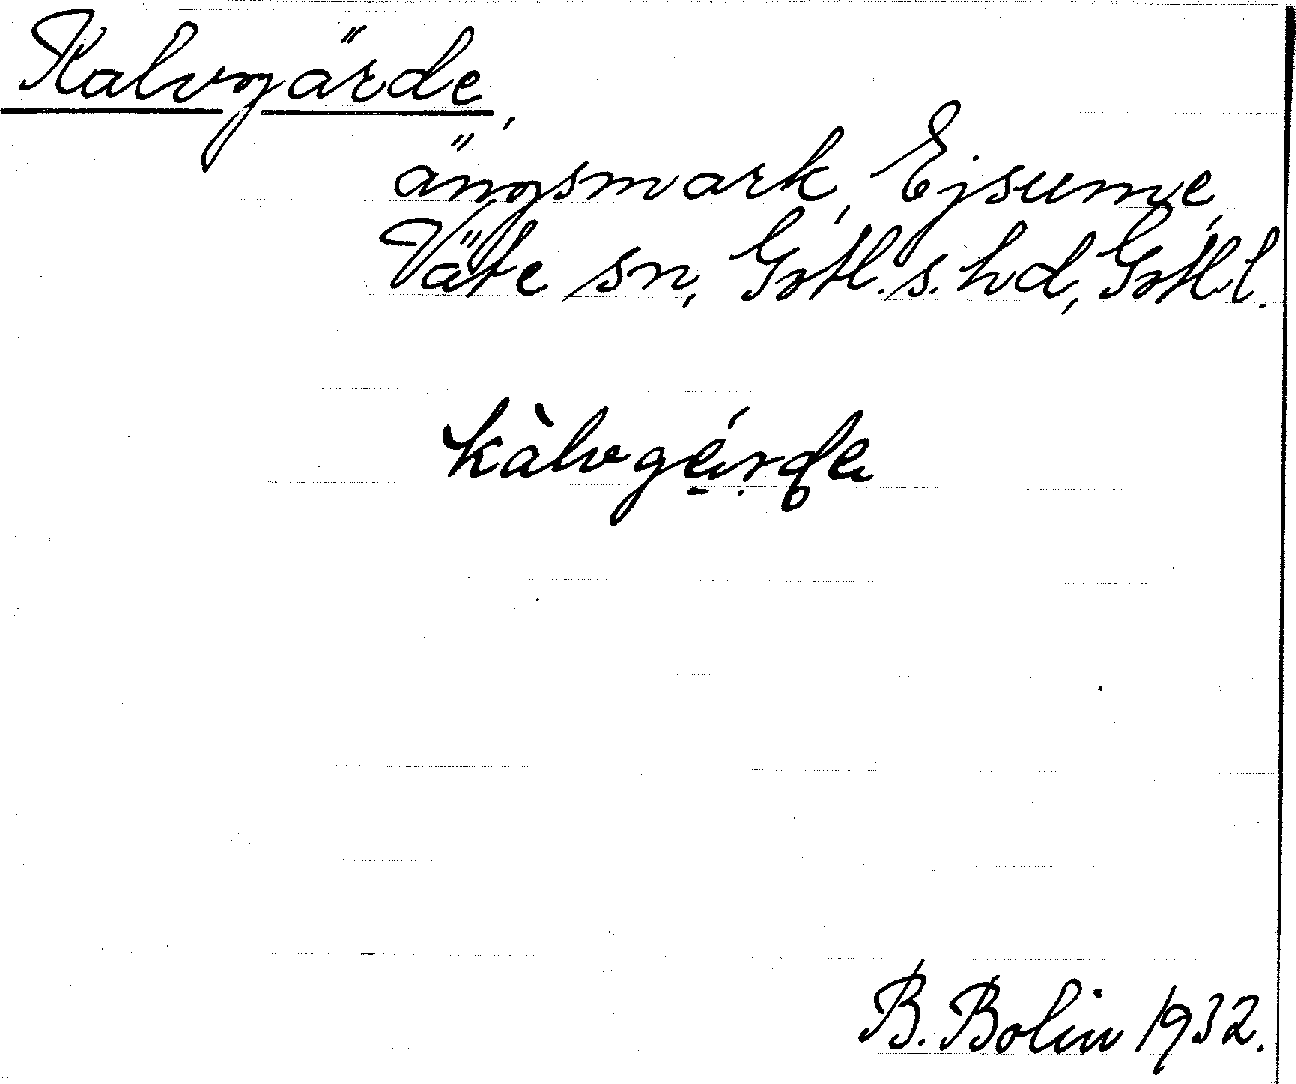 Kalvgärde,
ängsmark, Ejsume,
Väte sn, Gotl. s. hd, Gotl. l.
kàlvgárde
B. Bolin 1932.